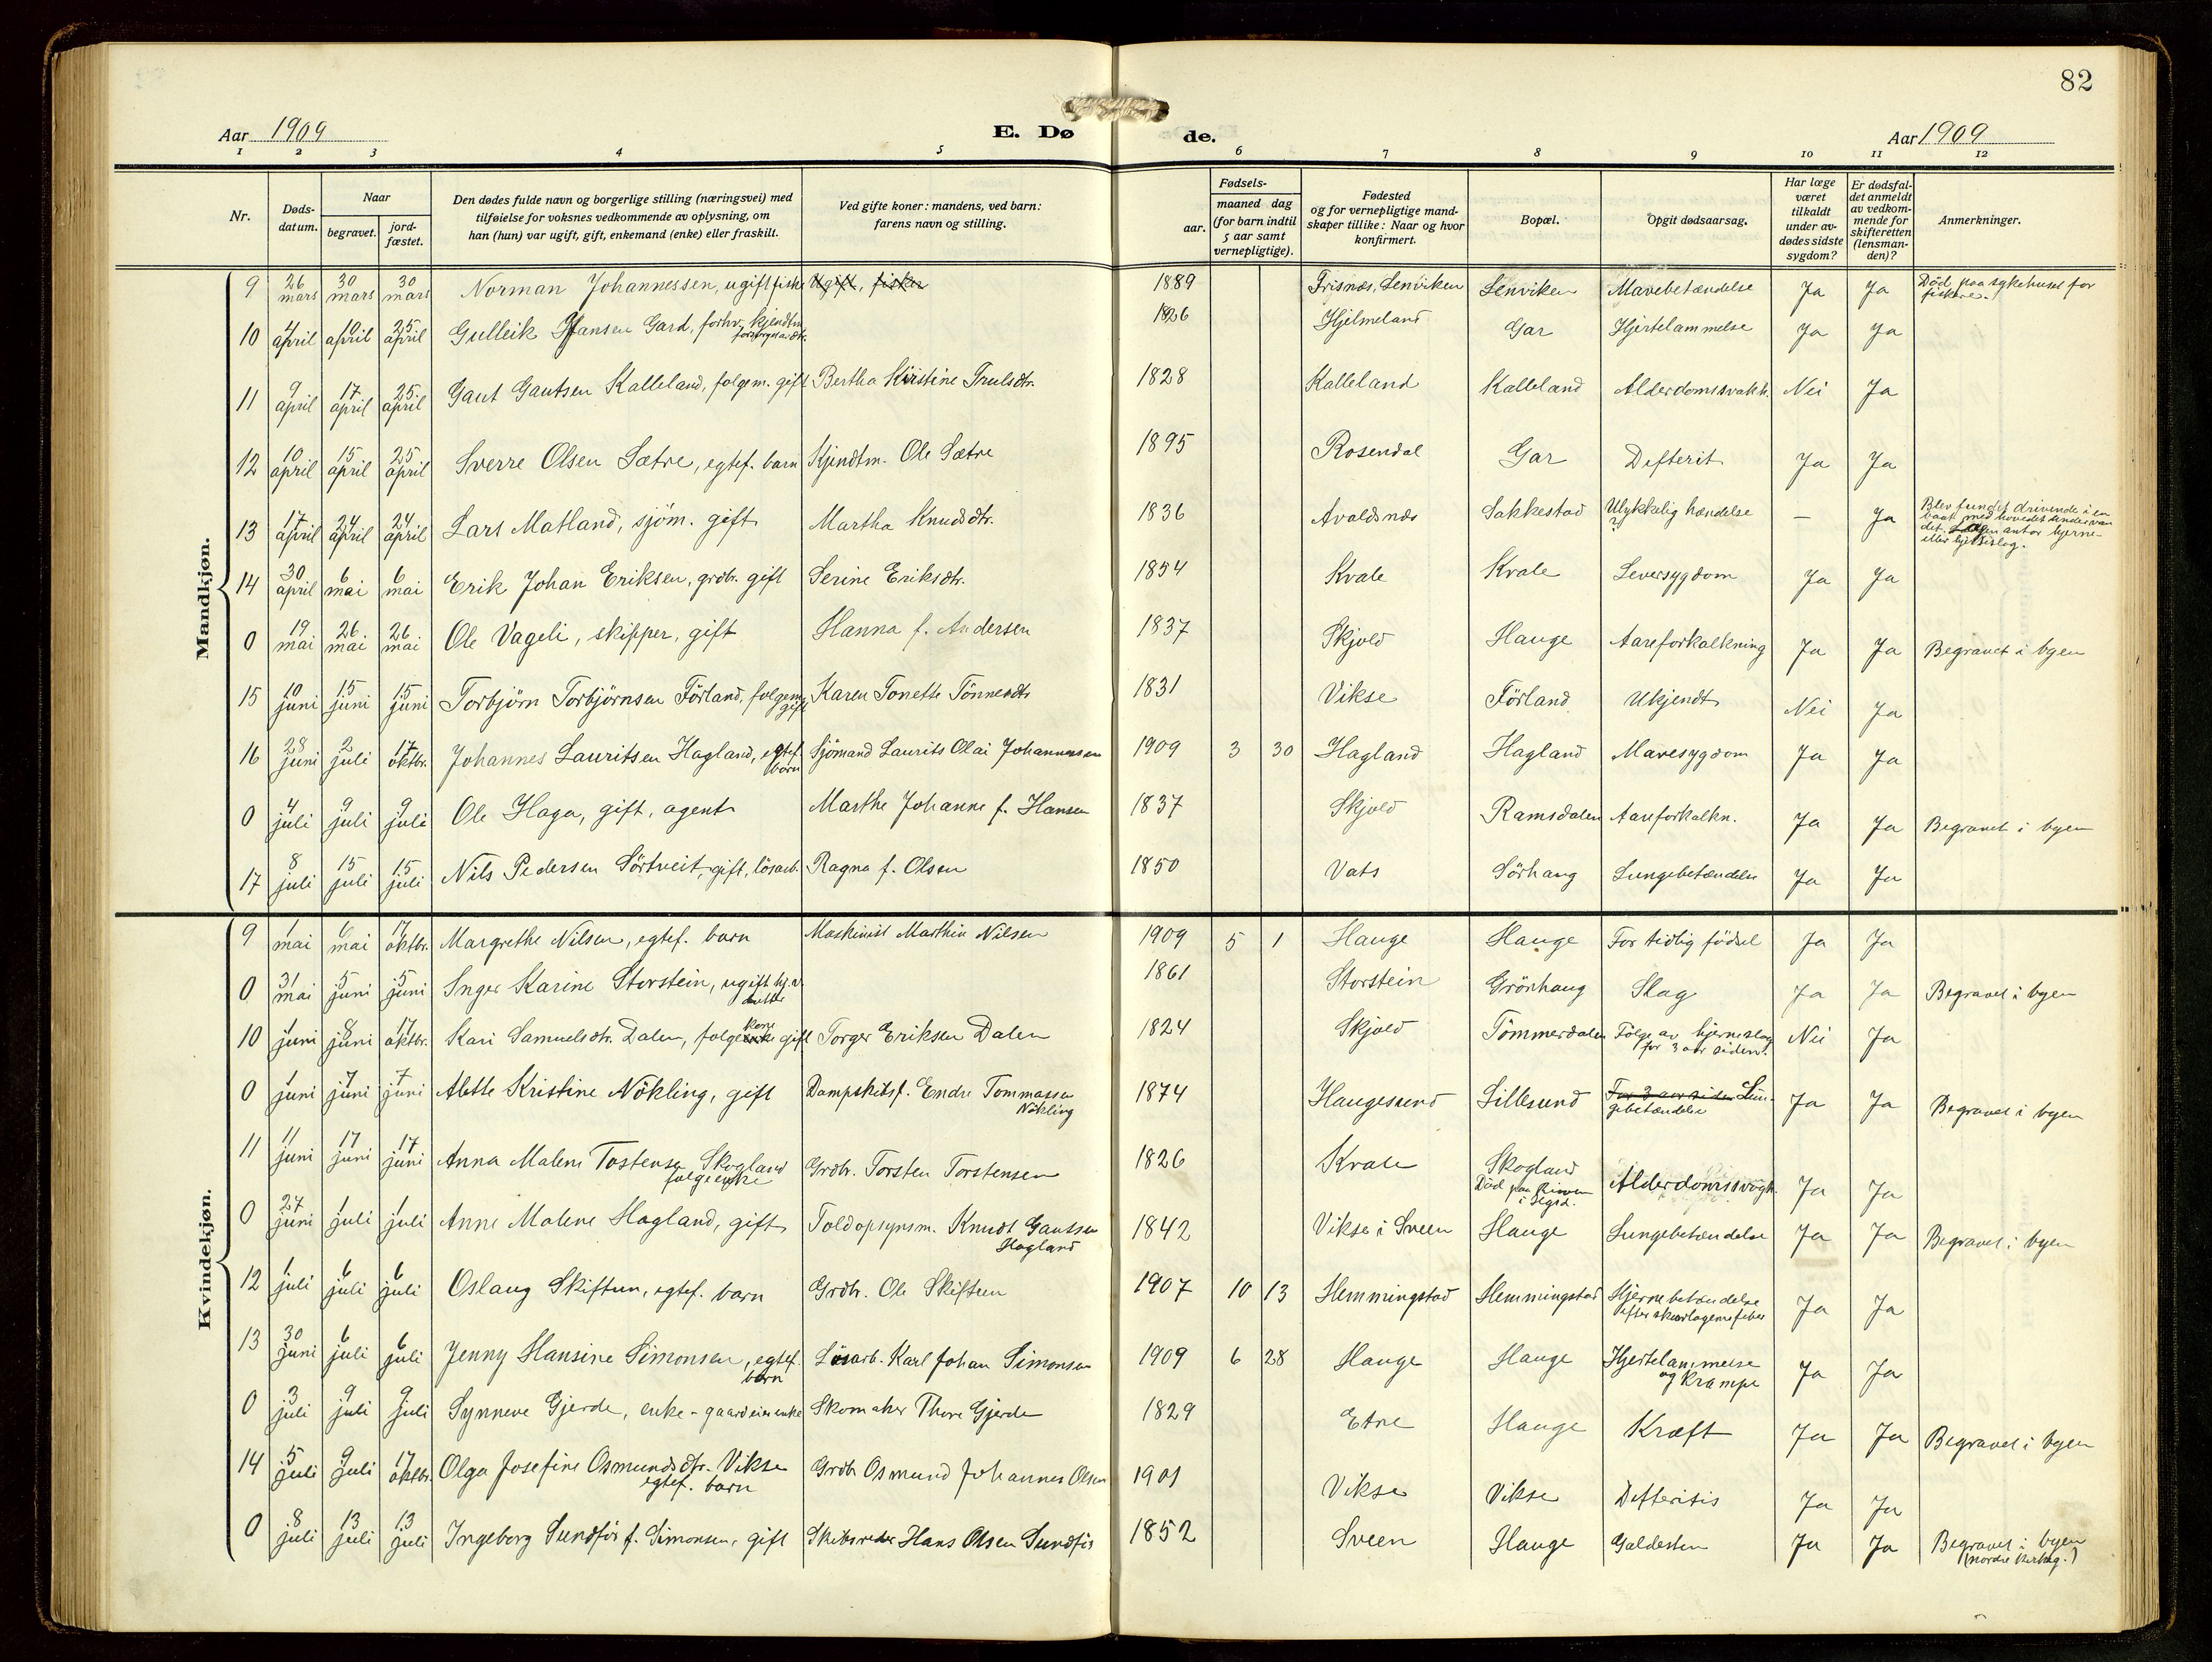 82
Aar 1909
E. Dø
de.
Aar 1909
1 2 3 4 5 6 7 8 9 10 11 12
Nr.
Døds-
datum.
Naar
begravet.
jord-
fæstet.
Den dødes fulde navn og borgerlige stilling (næringsvei) med
tilføielse for voksnes vedkommende av oplysning, om
han (hun) var ugift, gift, enkemand (enke) eller fraskilt.
Ved gifte koner: mandens, ved barn:
farens navn og stilling.
Fødsels-
aar.
maaned dag
(for barn indtil
5 aar samt
vernepligtige).
Fødested
og for vernepligtige mand-
skaper tillike: Naar og hvor
konfirmert.
Bopæl.
Opgit dødsaarsag.
Har læge
været
tilkaldt
under av-
dødes sidste
sygdom?
Er dødsfal-
det anmeldt
av vedkom-
mende for
skifteretten
(lensman-
den)?
Anmerkninger.
Mandkjøn.
9 26 mars 30 mars 30 mars Norman Johannessen, ugift fisker Ugift, fisker 1889 Frisnæs, Lenviken Lenviken Mavebetændelse Ja Ja Død paa sykehuset for
fiskere.
10 4 april 10 april 25 april Gulleik Hansen Gard, forhv. kjendtm. 1826 Hjelmeland Gar Hjertelammelse Ja Ja
11 9 april 17 april 25 april Gaut Gautsen Kalleland, folgem. gift Bertha Kirstine Trulsdtr. 1828 Kalleland Kalleland Alderdomssvakh. Nei Ja
12 10 april 15 april 25 april Sverre Olsen Sætre, egtef. barn Kjendtm. Ole Sætre 1895 Rosendal Gar Defterit Ja Ja
13 17 april 24 april 24 april Lars Matland, sjöm. gift Martha Knudsdtr. 1836 Avaldsnæs Sakkestad Ulykkelig hændelse ? — Ja Blev fundet drivende i en
baat med hovedet under van
det. Lægen antar hjerne-
eller hjerteslag.
14 30 april 6 mai 6 mai Erik Johan Eriksen, grdbr. gift Serine Eriksdtr. 1854 Kvale Kvale Leversygdom Ja Ja
0 19 mai 26 mai 26 mai Ole Vageli, skipper, gift Hanna f. Andersen 1837 Skjold Hauge Aareforkalkning Ja Ja Begravet i byen
15 10 juni 15 juni 15 juni Torbjörn Torbjörnsen Förland, folgem. gift Karen Tonette Tönnesdtr 1831 Vikse Förland Ukjendt Nei Ja
16 28 juni 2 juli 17 oktbr. Johannes Lauritsen Hagland, egtef. barn Sjömand Laurits Olai Johannessen 1909 3 30 Hagland Hagland Mavesygdom Ja Ja
0 4 juli 9 juli 9 juli Ole Haga, gift, agent Marthe Johanne f. Hansen 1837 Skjold Ramsdalen Aareforkalkn. Ja Ja Begravet i byen
17 8 juli 15 juli 15 juli Nils Pedersen Sörtveit, gift, lösarb. Ragna f. Olsen 1850 Vats Sörhaug Lungebetændelse Ja Ja
Kvindekjøn.
9 1 mai 6 mai 17 oktbr. Margrethe Nilsen, egtef. barn Maskinist Marthin Nilsen 1909 5 1 Hauge Hauge For tidlig födsel Ja Ja
0 31 mai 5 juni 5 juni Inger Karine Storstein, ugift 1861 Storstein Grönhaug Slag Ja Ja Begravet i byen
10 1 juni 8 juni 17 oktbr. Kari Samuelsdtr. Dalen, folgekone gift Torger Eriksen Dalen 1824 Skjold Tömmerdalen Følge av hjerneslag
for 3 aar siden. Nei Ja
0 1 juni 7 juni 7 juni Alette Kristine Nökling, gift Dampskibsf. Endre Tommassen
Nökling 1874 Haugesund Lillesund For 3 aar siden Lun-
gebetændelse Ja Ja Begravet i byen
11 11 juni 17 juni 17 juni Anna Malene Tostensen Skogland
folgeenke Grdbr. Torsten Torstensen 1826 Kvale Skogland
Död paa
i Segld. Alderdomssvagh. Ja Ja
0 27 juni 1 juli 1 juli Anne Malene Hagland, gift Toldopsynsm. Knudt Gautsen
Hagland 1842 Vikse i Sveen Hauge Lungebetændelse Ja Ja Begravet i byen
12 1 juli 6 juli 6 juli Oslaug Skiftun, egtef. barn Grdbr. Ole Skiftun 1907 10 13 Hemmingstad Hemmingstad Hjernebetændelse
efter skarlagensfeber Ja Ja
13 30 juni 6 juli 6 juli Jenny Hansine Simonsen, egtef.
barn Lösarb. Karl Johan Simonsen 1909 6 28 Hauge Hauge Hjertelammelse
og Krampe Ja Ja
0 3 juli 9 juli 9 juli Synneve Gjerde, enke - gaardeierenke Skomaker Thore Gjerde 1829 Etne Hauge Kræft Ja Ja Begravet i byen
14 5 juli 9 juli 17 oktbr. Olga Josefine Osmundsdtr. Vikse
egtef. barn Grdbr Osmund Johannes Olsen 1901 Vikse Vikse Difteritis Ja Ja
0 8 juli 13 juli 13 juli Ingeborg Sundför f. Simonsen, gift Skibsreder Hans Olsen Sundför 1852 Sveen Hauge Galdesten Ja Ja Begravet i byen
(nordre kirkeg.)